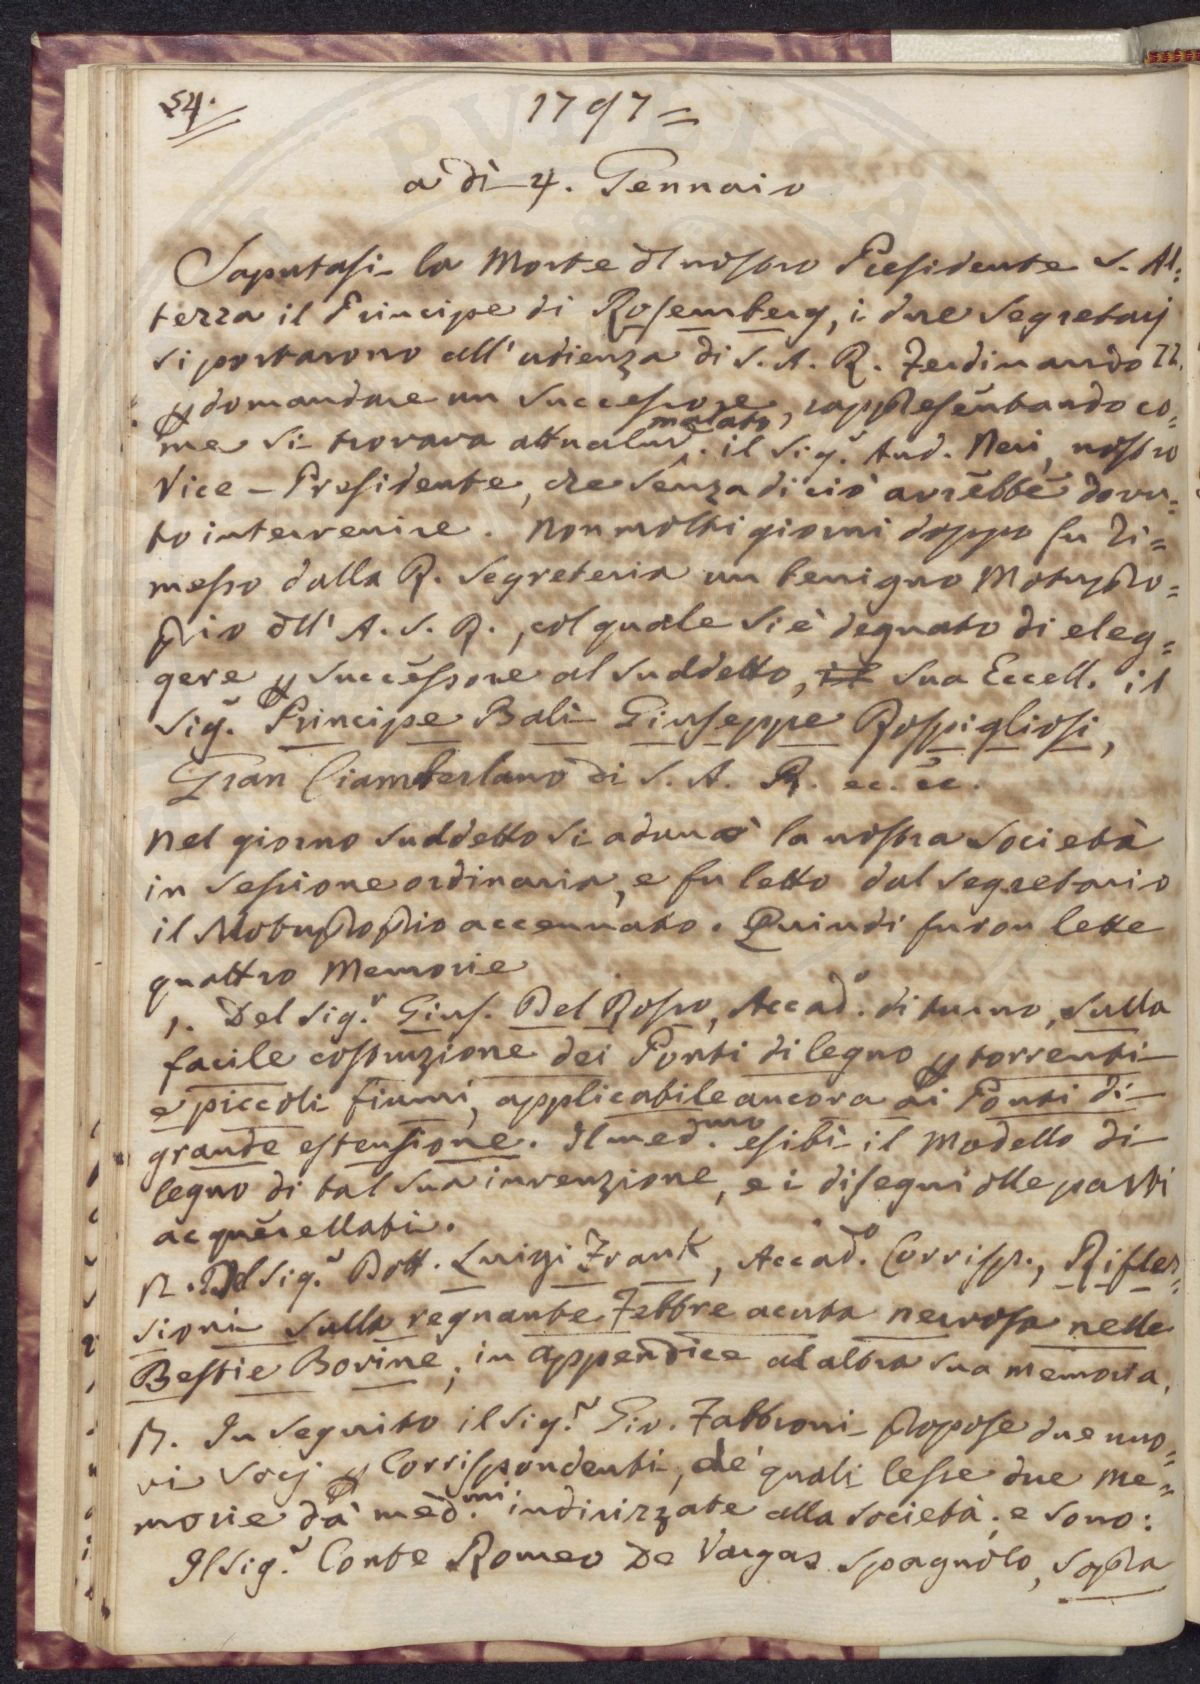 54.
1797=
a dì 4. Gennaio
Saputasi la Morte dl nostro Presidente S. Al=
tezza il Principe di Rosemberg, i due Segretarj
si portarono all' udienza di S. A. R. Ferdinando III.
p domandare un Successore, rappresentando co=
me si trovava attualmte. malato il Sigr. Aud. Neri, nostro
Vice-Presidente, che senza di ciò avrebbe dovu=
to intervenire. Non molti giorni doppo fu ri=
messo dalla R. Segreteria un benigno Motupro=
prio dll' A. S. R., col quale si è degnato di eleg=
gere p successore al suddetto, il Sua Eccell. il
Sigr. Principe Balì Giuseppe Rospigliosi,
Gran Ciamberlano di S. A. R. ec. ec.
Nel giorno suddetto si adunò la nostra Società
in Sessione ordinaria, e fu letto dal Segretario
il Motuproprio accennato. Quindi furon lette
quattro Memorie
1. Del Sigr. Gius. Del Rosso, Accado. di turno, sulla
facile costruzione dei Ponti di legno p torrenti
e piccoli fiumi, applicabile ancora ai Ponti di
grande estensione. Il medmo. esibì il Modello di
legno di tal sua invenzione, e i disegni dlle parti
acquerellati.
2. Del Sigr. Dott. Luigi Frank, Accado. Corrisp., Rifles=
sioni sulla regnante Febbre acuta nervosa nelle
Bestie Bovine, in appendice ad altra sua memoria.
3. In seguito il Sigr. Gio. Fabbroni propose due nuo=
vi Socj p Corrispondenti, de' quali lesse due Me=
morie da medmi. indirizzate alla Società; e sono:
Il Sigr. Conte Romeo De Vargas Spagnolo, sopra